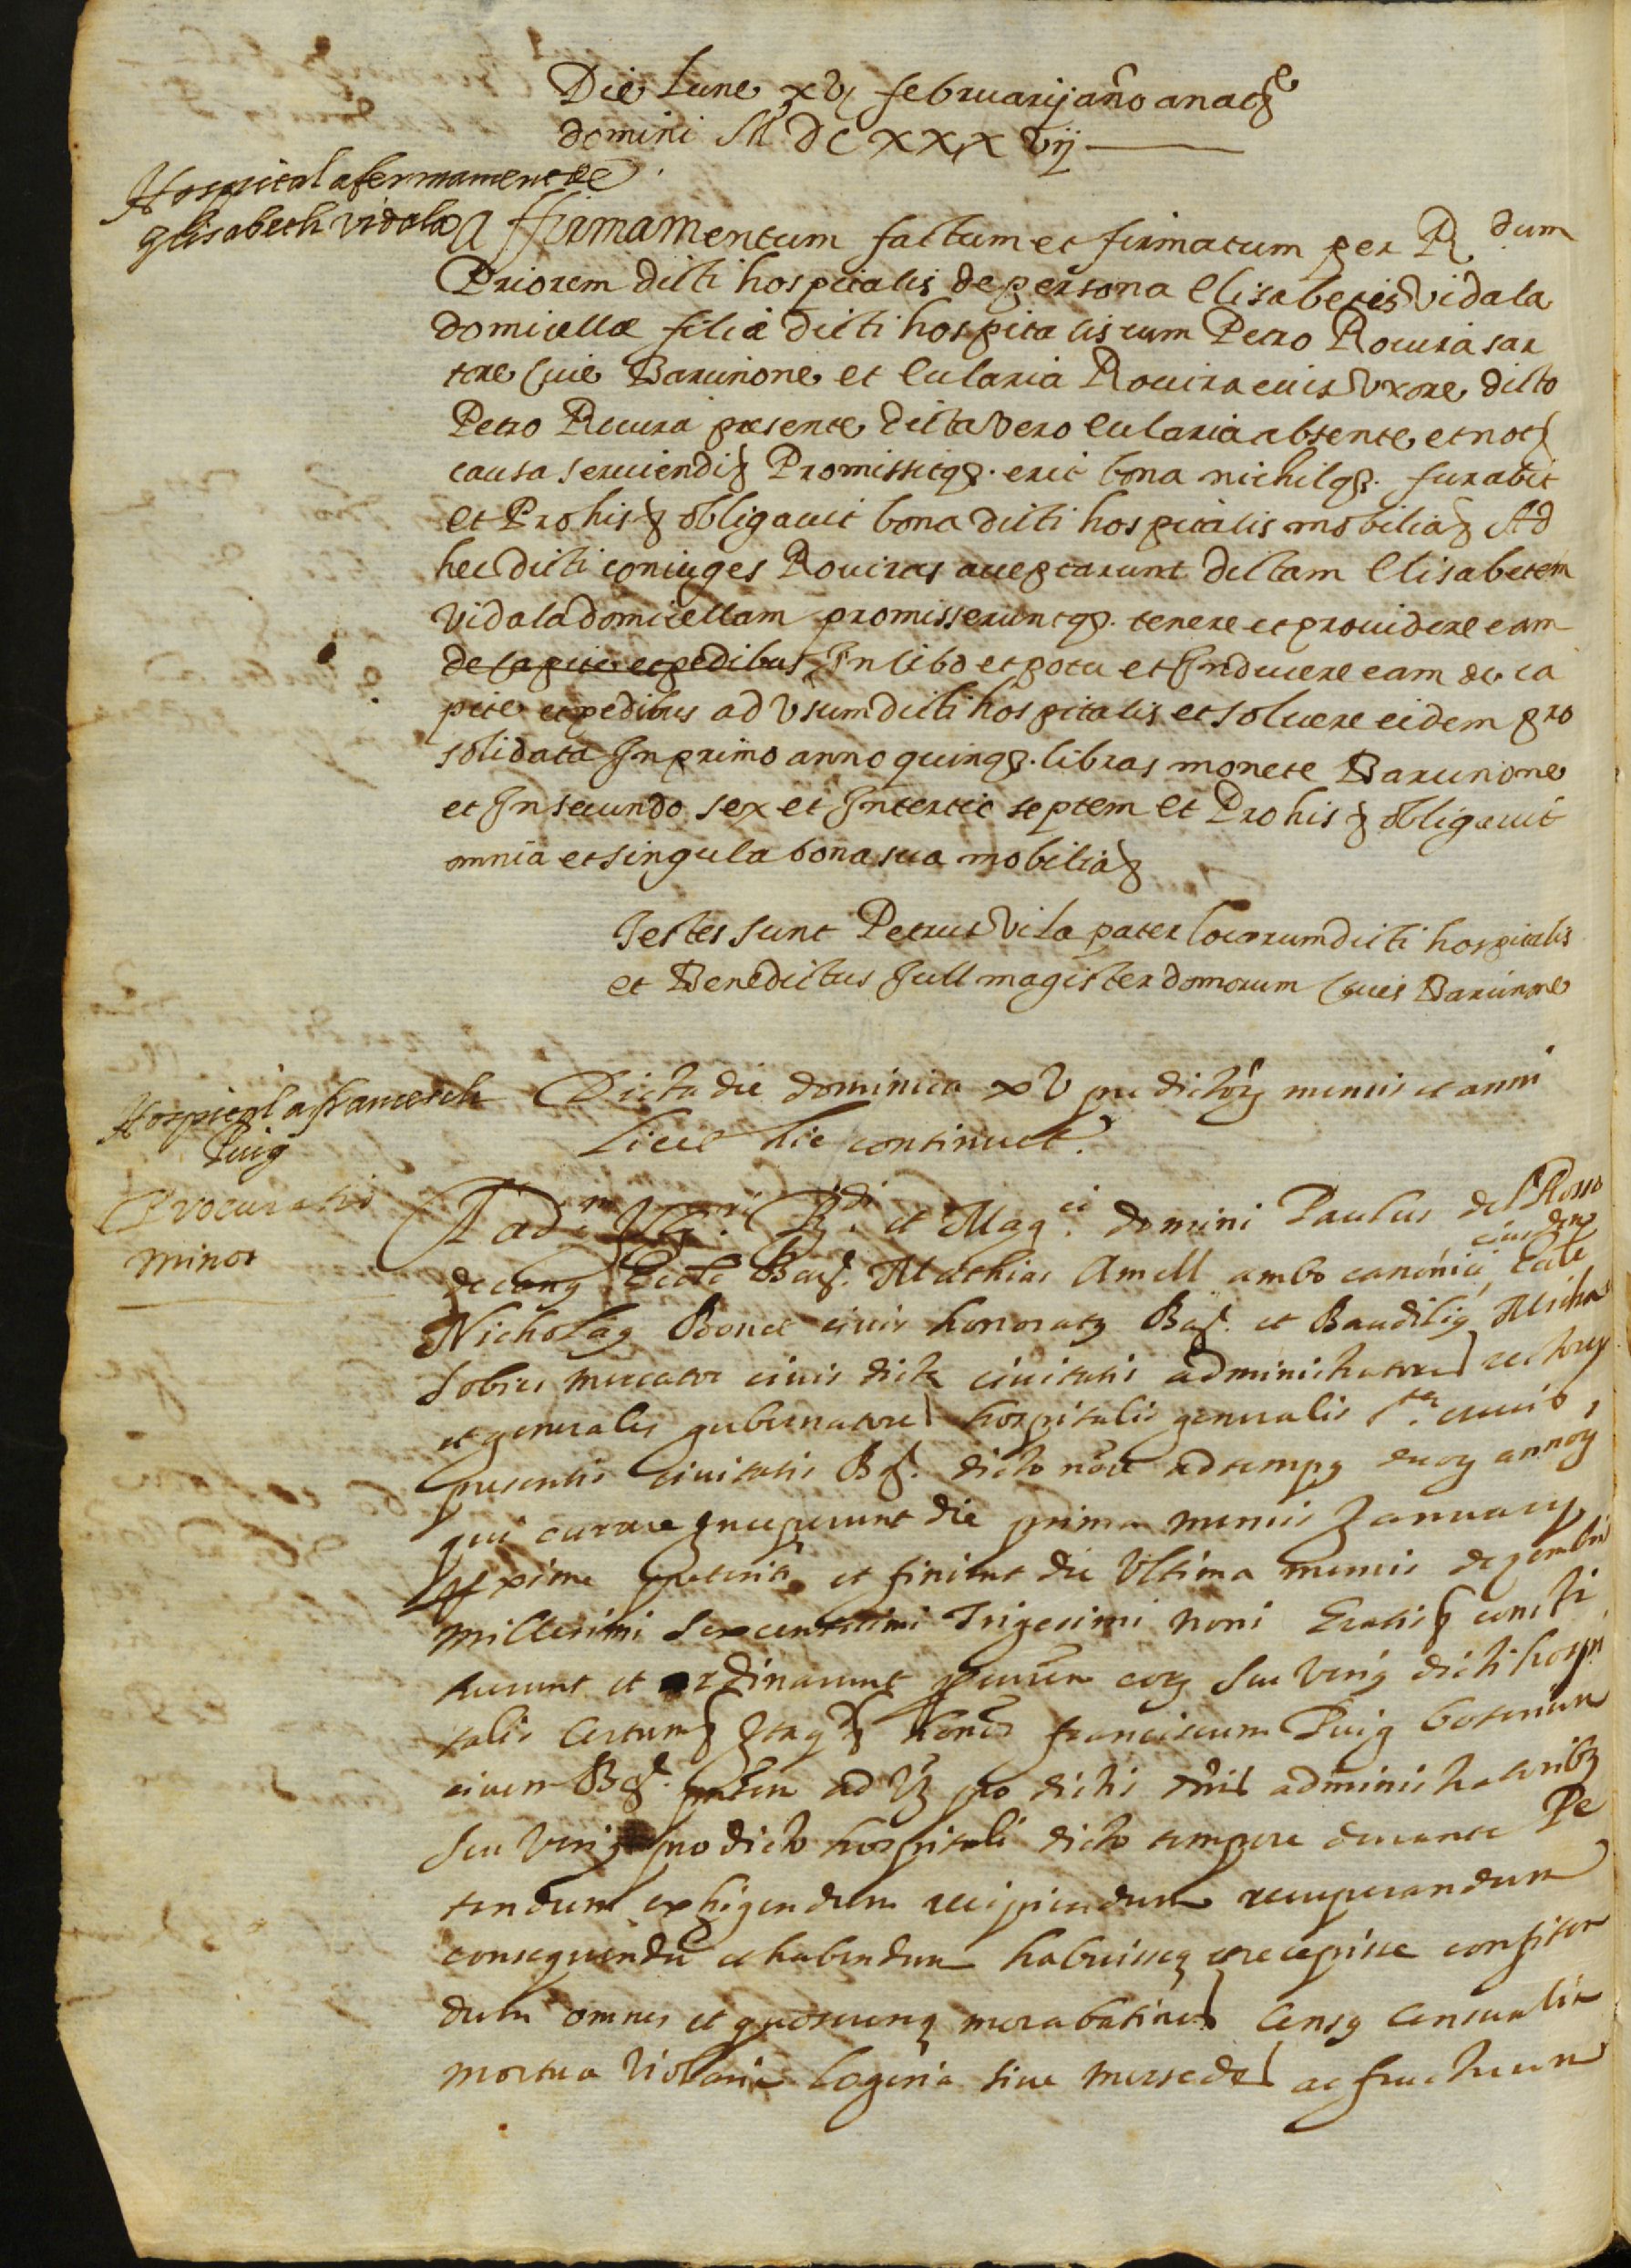 Die Lune xvi februarij año a natte
domini M DC XXX Vij
Hospital afermament de
Elisabeth Vidala
Affirmamentum factum et firmatum per R.dum
Priorem dicti hospitalis de persona Elisabetis Vidala
domicellæ filiæ dicti hospitalis cum Petro Rouira sar
tore Ciue Barcinone et Eularia Rouira euis Uxore dicto
Petro Rouira presente dicta Vero Eularia absente et not
causa seruiendi Promissitq. erit bona nichilq. furabit
et Pro his obligauit bona dicti hospitalis mobilia Ad
hec dicti coniuges Rouiras acceptarunt dictam Elisabetem
Vidala domicellam promisseruntq. tenere et prouidere eam
de capite et pedibus In cibo et potu et Induere eam de ca
pite et pedibus ad Usum dicti hospitalis et soluere eidem pro
solidata In primo anno quinq. libras monete Barcinone
et In secundo sex et In tertio septem et Pro his obligauit
omnia et singula bona sua mobilia
Testes sunt Petrus Vila pater locorum dicti hospitalis
et Benedictus Jull magister domorum Ciuis Barcinone
Hospital a francesch
Puig
Dicto die dominica xv predictorũ mensis et anni
licet hic continuet.
Procuratio
minor
Ad.m Ill. R.di et Mag.ci domini Paulus del Rosso
decang Eccle Barῆ. Mathias Amell ambo canonici eiusdem Eccle
Nicholaỹ Bonet ciuis honoratỹ Barῆ. et Baudiliỹ Micha
Sobies mercator ciuis dicte ciuitatis administratores rectores
et generales gubernatores hospitalis generalis S.te crucis
presentis ciuitatis Barῆ. dicto nõe ad tempỹ duoỹ annoỹ
qui currere Inceperunt die prima mensis Januarij
pxime preteriti et finient die Ultima mensis dezembris
millesimi sexcentesimi Trigesimi noni Gratis consti
tuerunt et ordinarunt procurem eoỹ seu Verius dicti hospi
talis Certum Itaq honor franciscum Puig botonum
ciuem Barῆ. pñtem ad pro dictis dñis administratoribỹ
seu Verius pro dicto hospitali dicto tempore durante Pe
tendum exhigendum recipiendum recuperandum
consequendũ et habendum habuisseq et recepisse confiten
dum omnes et quoscunq morabatinos Censỹ Censualia
mortua Violaria logeria siue mersedes ac fructuum